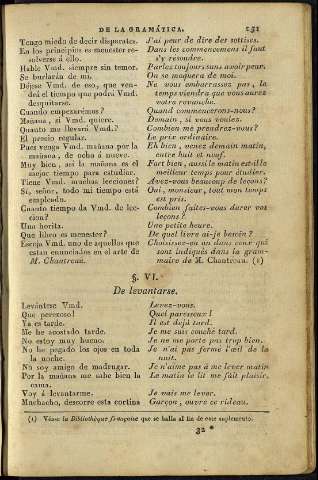 DE LA GRAMÁTICA. 251
Tengo miedo de decir disparates. J'ai peur de dire des sottises.
En los principios es menester re- Dans les commencemens il faut
solverse á ello. s'y résoudre.
Hable Vmd. siempre sin temor. Parlez toujours sans avoir peur.
Se burlarán de mí. On se moquera de moi.
Déjese Vmd. de eso, que ven- Ne vous embarrassez pas, le
drá el tiempo que podrá Vmd. temps viendra que vous aurez
desquitarse. votre revanche.
Cuando empezarémos? Quand commencerons-nous?
Mañana, si Vmd. quiere. Demain, si vous voulez.
Quanto me llevará Vmd.? Combien me prendrez-vous?
El precio regular. Le prix ordinaire.
Pues venga Vmd. mañana por la Eh bien, venez demain matin,
mañana, de ocho á nueve. entre huit et neuf.
Muy bien, así la mañana es el Fort bien, aussi le matin est-il le
mejor tiempo para estudiar. meilleur temps pour étudier.
Tiene Vmd. muchas lecciones? Avez-vous beaucoup de leçons?
Sí, señor, todo mi tiempo está Oui, monsieur, tout mon temps
empleado. est pris.
Cuanto tiempo da Vmd. de lec- Combien faites-vous durer vos
cion? leçons?
Una horita. Une petite heure.
Que libro es menester? De quel livre ai-je besoin?
Escoja Vmd. uno de aquellos que Choisissez-en un dans ceux qui
estan enunciados en el arte de sont indiqués dans la gram-
M. Chantreau. maire de M. Chantreau. (1)
§. VI.
De levantarse.
Levántese Vmd. Levez-vous.
Que perezoso! Quel paresseux!
Ya es tarde. Il est déjà tard.
Me he acostado tarde. Je me suis couché tard.
No estoy muy bueno. Je ne me porte pas trop bien.
No he pegado los ojos en toda Je n'ai pas fermé l'œil de la
la noche. nuit.
No soy amigo de madrugar. Je n'aime pas à me lever matin
Por la mañana me sabe bien la Le matin le lit me fait plaisir.
cama.
Voy á levantarme. Je vais me lever.
Muchacho, descorre esta cortina Garçon, ouvre ce rideau.
(1) Véase la Bibliothèque françoise que se halla al fin de este suplemento.
32 *